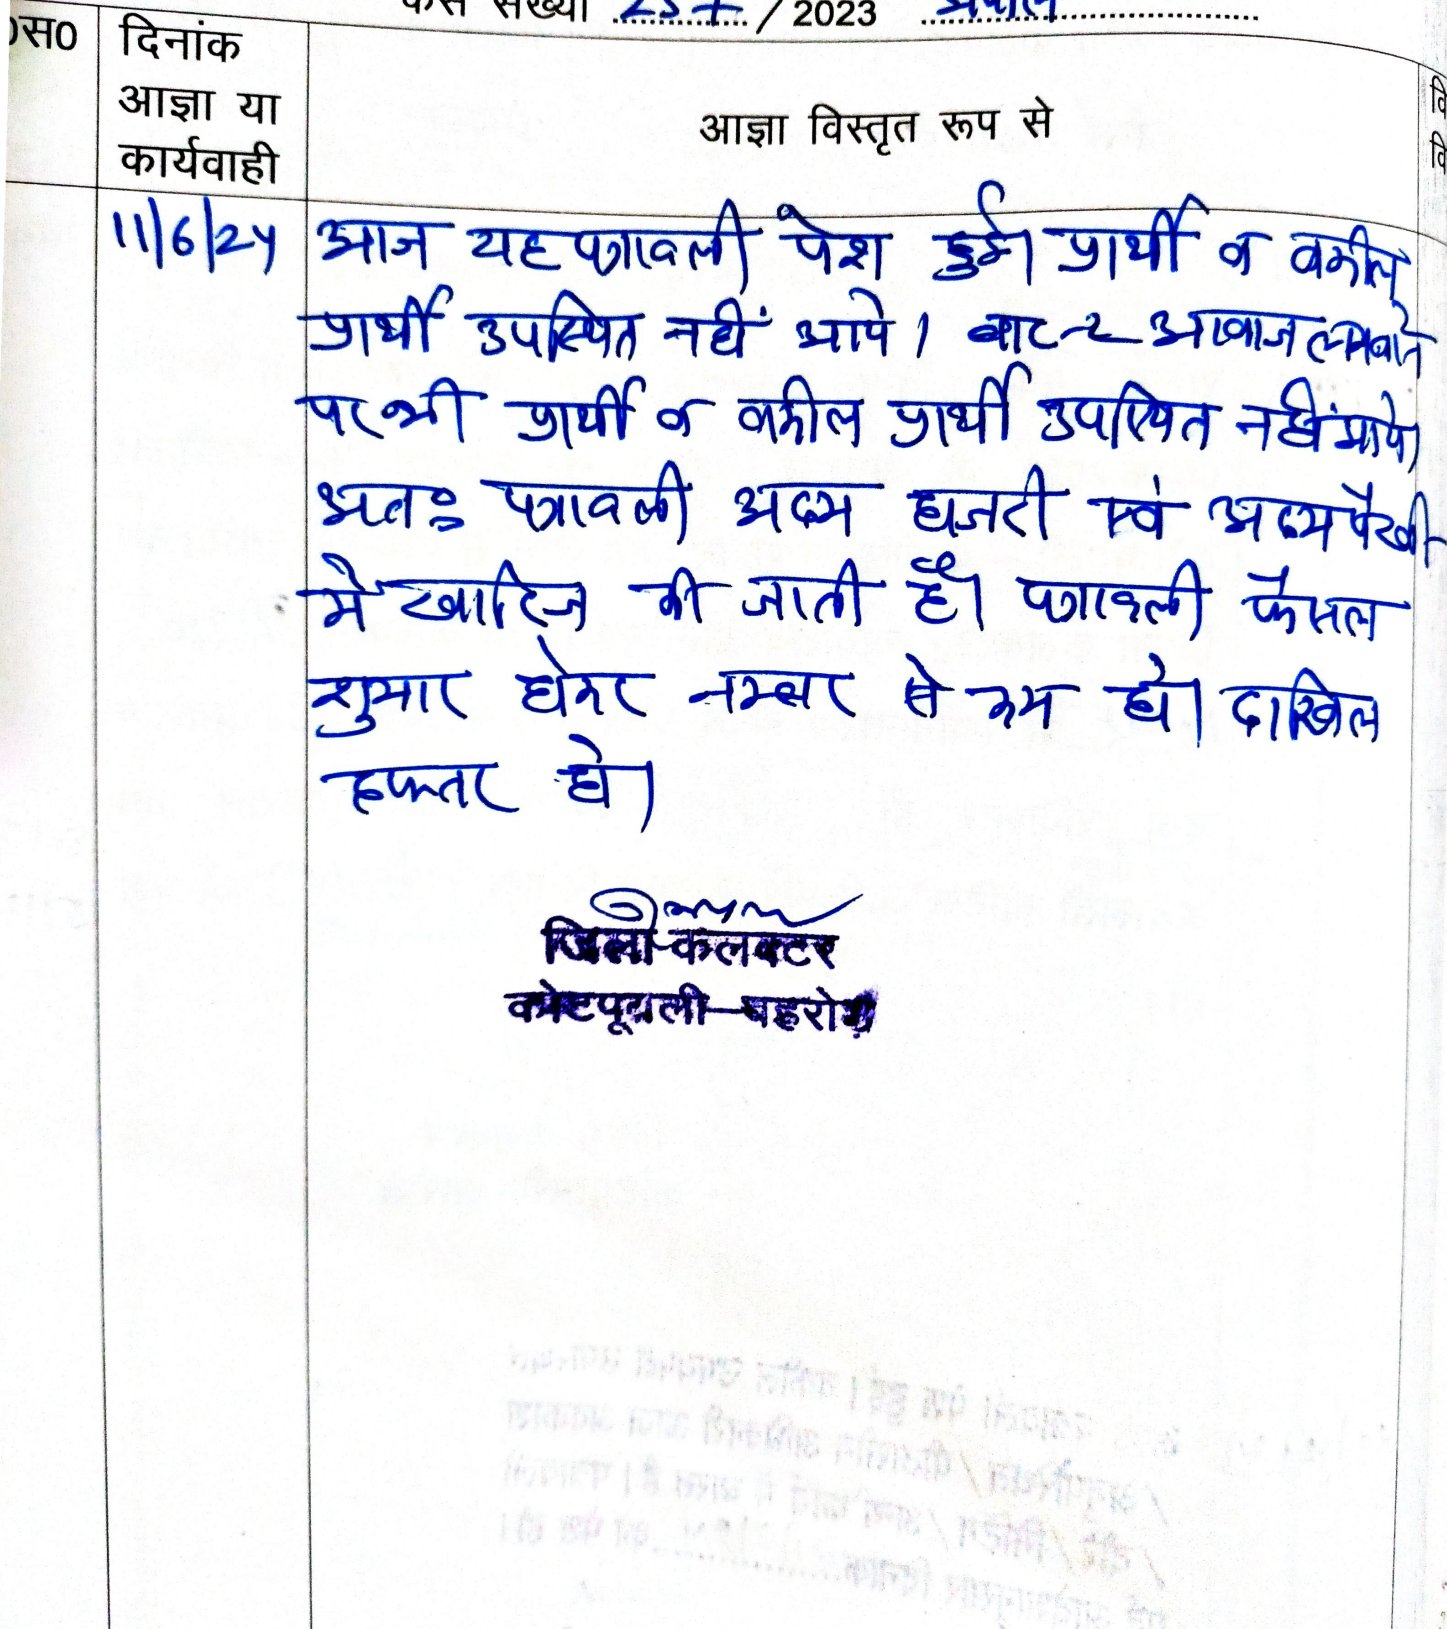 केस संख्या 257 / 2023 अपील
स0 दिनांक
आज्ञा या
कार्यवाही
आज्ञा विस्तृत रूप से
वि
वि
11/6/24 आज यह पत्रावली पेश हुई। प्रार्थी व वकील
प्रार्थी उपस्थित नहीं आये। बार-2 आवाज लगवाने
पर भी प्रार्थी व वकील प्रार्थी उपस्थित नहीं आये।
अतः पत्रावली अदम हाजरी एवं अदम पैरवी
में खारिज की जाती है। पत्रावली फैसल
शुमार होकर नम्बर से कम हो। दाखिल
दफ्तर हो।
जिला कलक्टर
कोटपूतली-बहरोड़